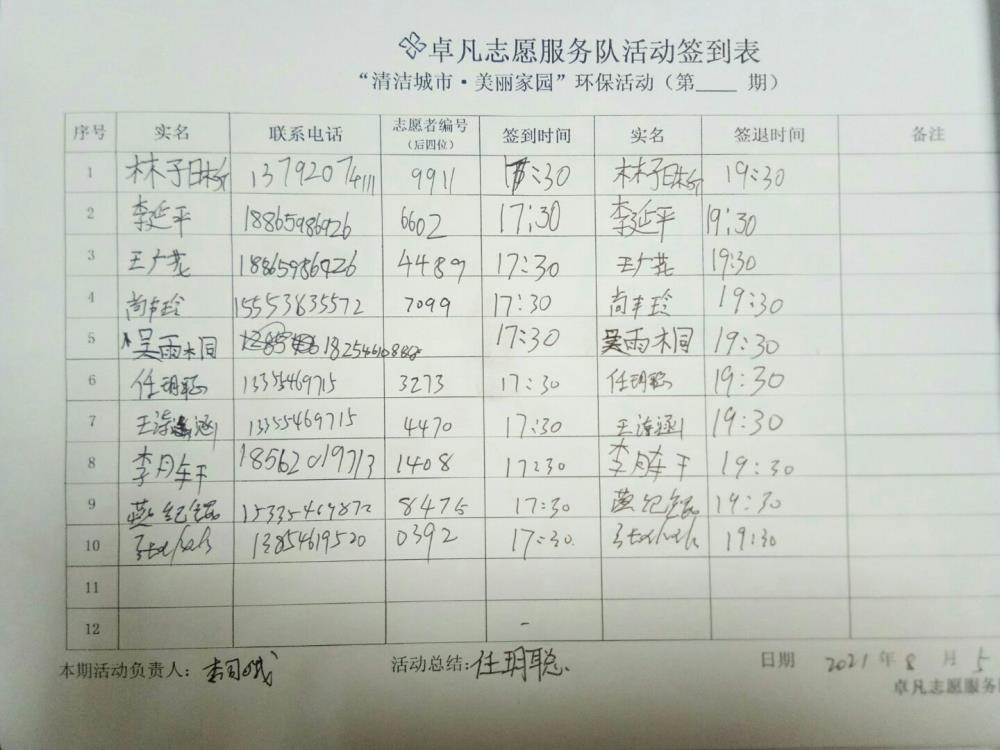 卓凡志愿服务队活动签到表
“清洁城市·美丽家园”环保活动（第____ 期）
序号 实名 联系电话 志愿者编号（后四位） 签到时间 实名 签退时间 备注
1 林子 13792074111 9911 17:30 林子 19:30
2 李延平 18865986926 6602 17:30 李延平 19:30
3 王广 18865986926 4489 17:30 王广 19:30
4 尚丰玲 15553635572 7099 17:30 尚丰玲 19:30
5 吴雨桐 17:30 吴雨桐 19:30
6 任玥聪 13355469715 3273 17:30 任玥聪 19:30
7 王涵 13355469715 4470 17:30 王涵 19:30
8 李 18562019713 1408 17:30 李 19:30
9 燕纪 15335469872 8475 17:30 燕纪 19:30
10 13854619520 0392 17:30 19:30
11
12
本期活动负责人： 活动总结:任玥聪 日期 2021 年 8 月 5
卓凡志愿服务